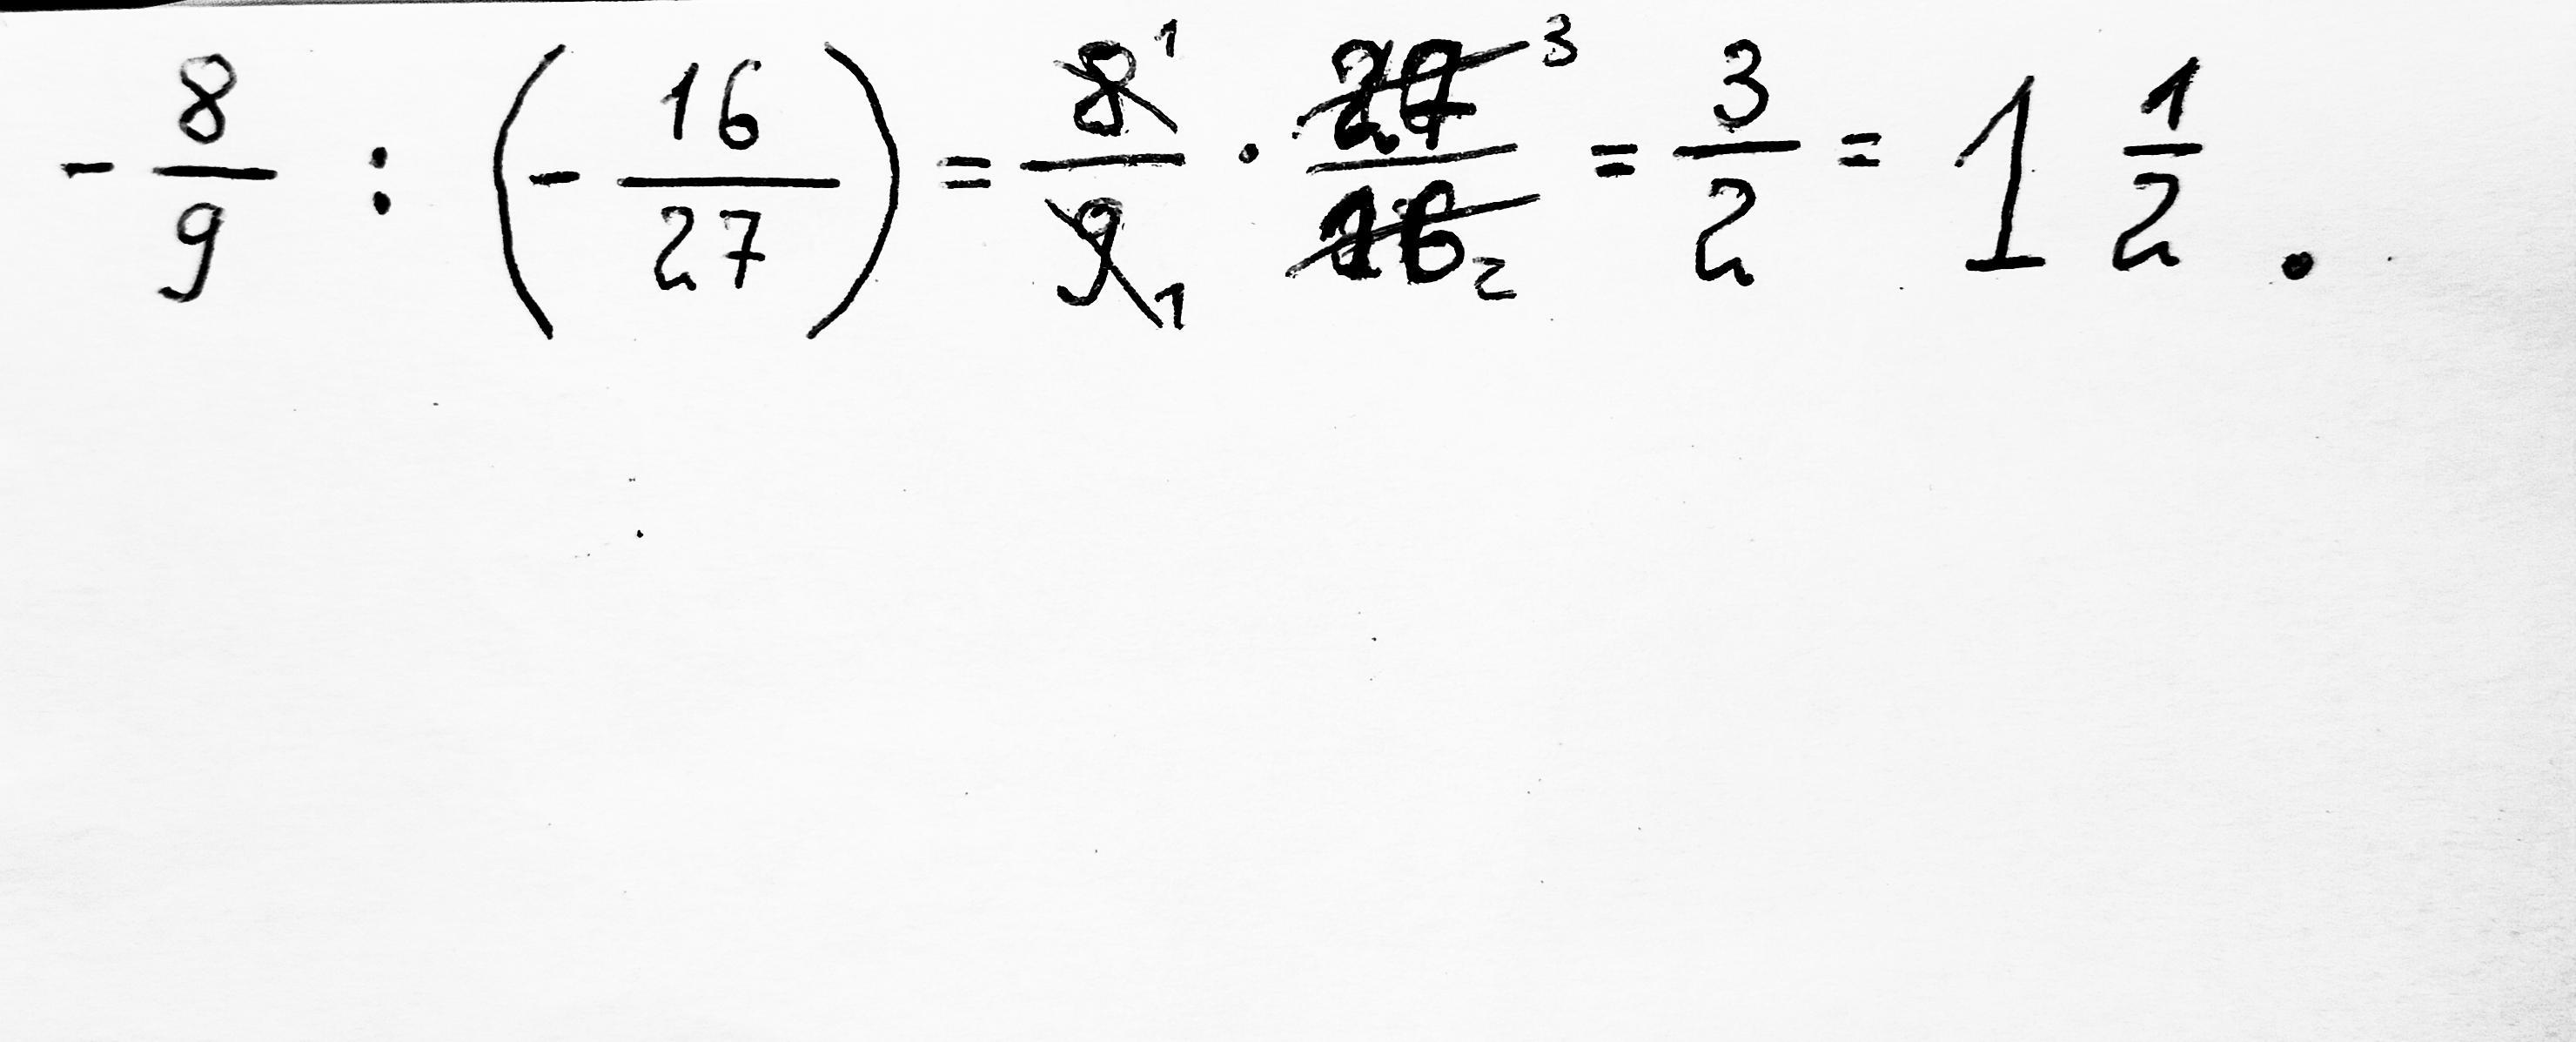 - 8/9 : (- 16/27) = 8¹/9₁ · 27³/16₂ = 3/2 = 1 1/2 .